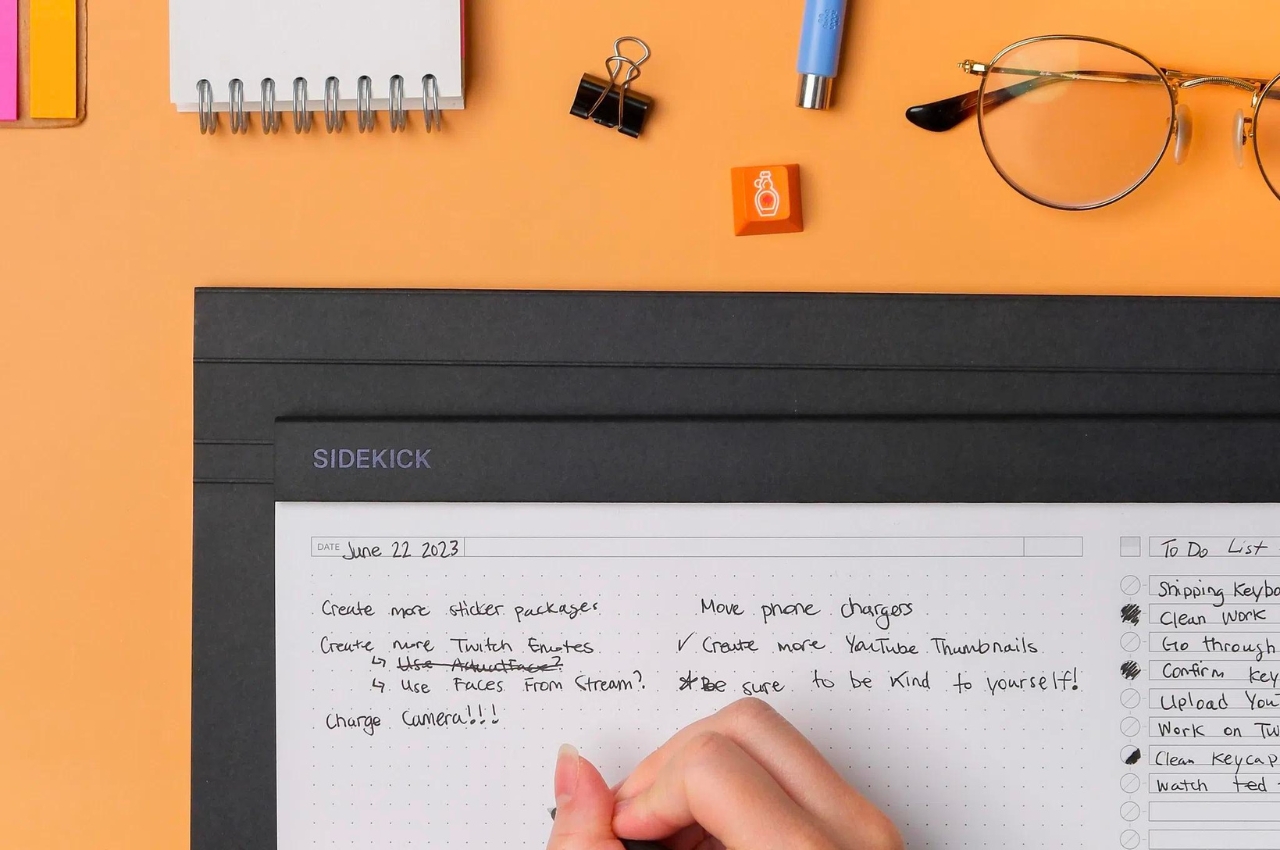 SIDEKICK
DATE June 22 2023
Create more sticker packages
Create more Twitch Emotes
↳ Use Faces From Stream?
Charge Camera!!!
Move phone chargers
✓ Create more YouTube Thumbnails
*Be sure to be kind to yourself!
To Do List
Shipping Keybo
Clean Work
Go through
Confirm Key
Upload You
Work on Tw
Clean Keycap
Watch ted